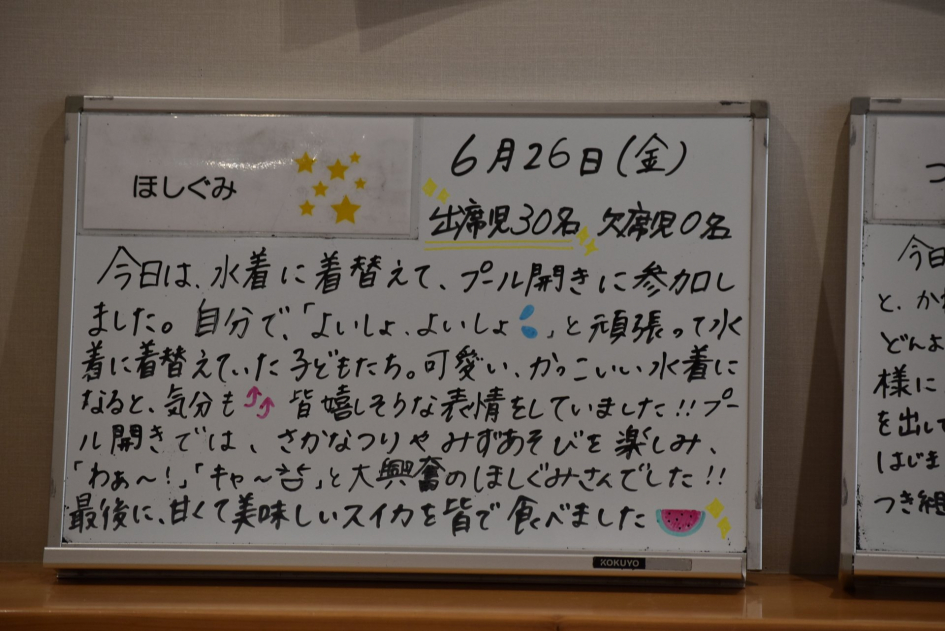 ほしぐみ
6月26日(金)
出席児30名 欠席児0名
今日は、水着に着替えて、プール開きに参加し
ました。自分で、「よいしょ、よいしょ」と頑張って水
着に着替えていた子どもたち。可愛い、かっこいい水着に
なると、気分も 皆嬉しそうな表情をしていました!!プー
ル開きでは、さかなつりやみずあそびを楽しみ、
「わぁ〜!」「キャ〜」と大興奮のほしぐみさんでした!!
最後に、甘くて美味しいスイカを皆で食べました
KOKUYO
つ
今日
と、か
どんよ
様に
を出して
はじま
つき組